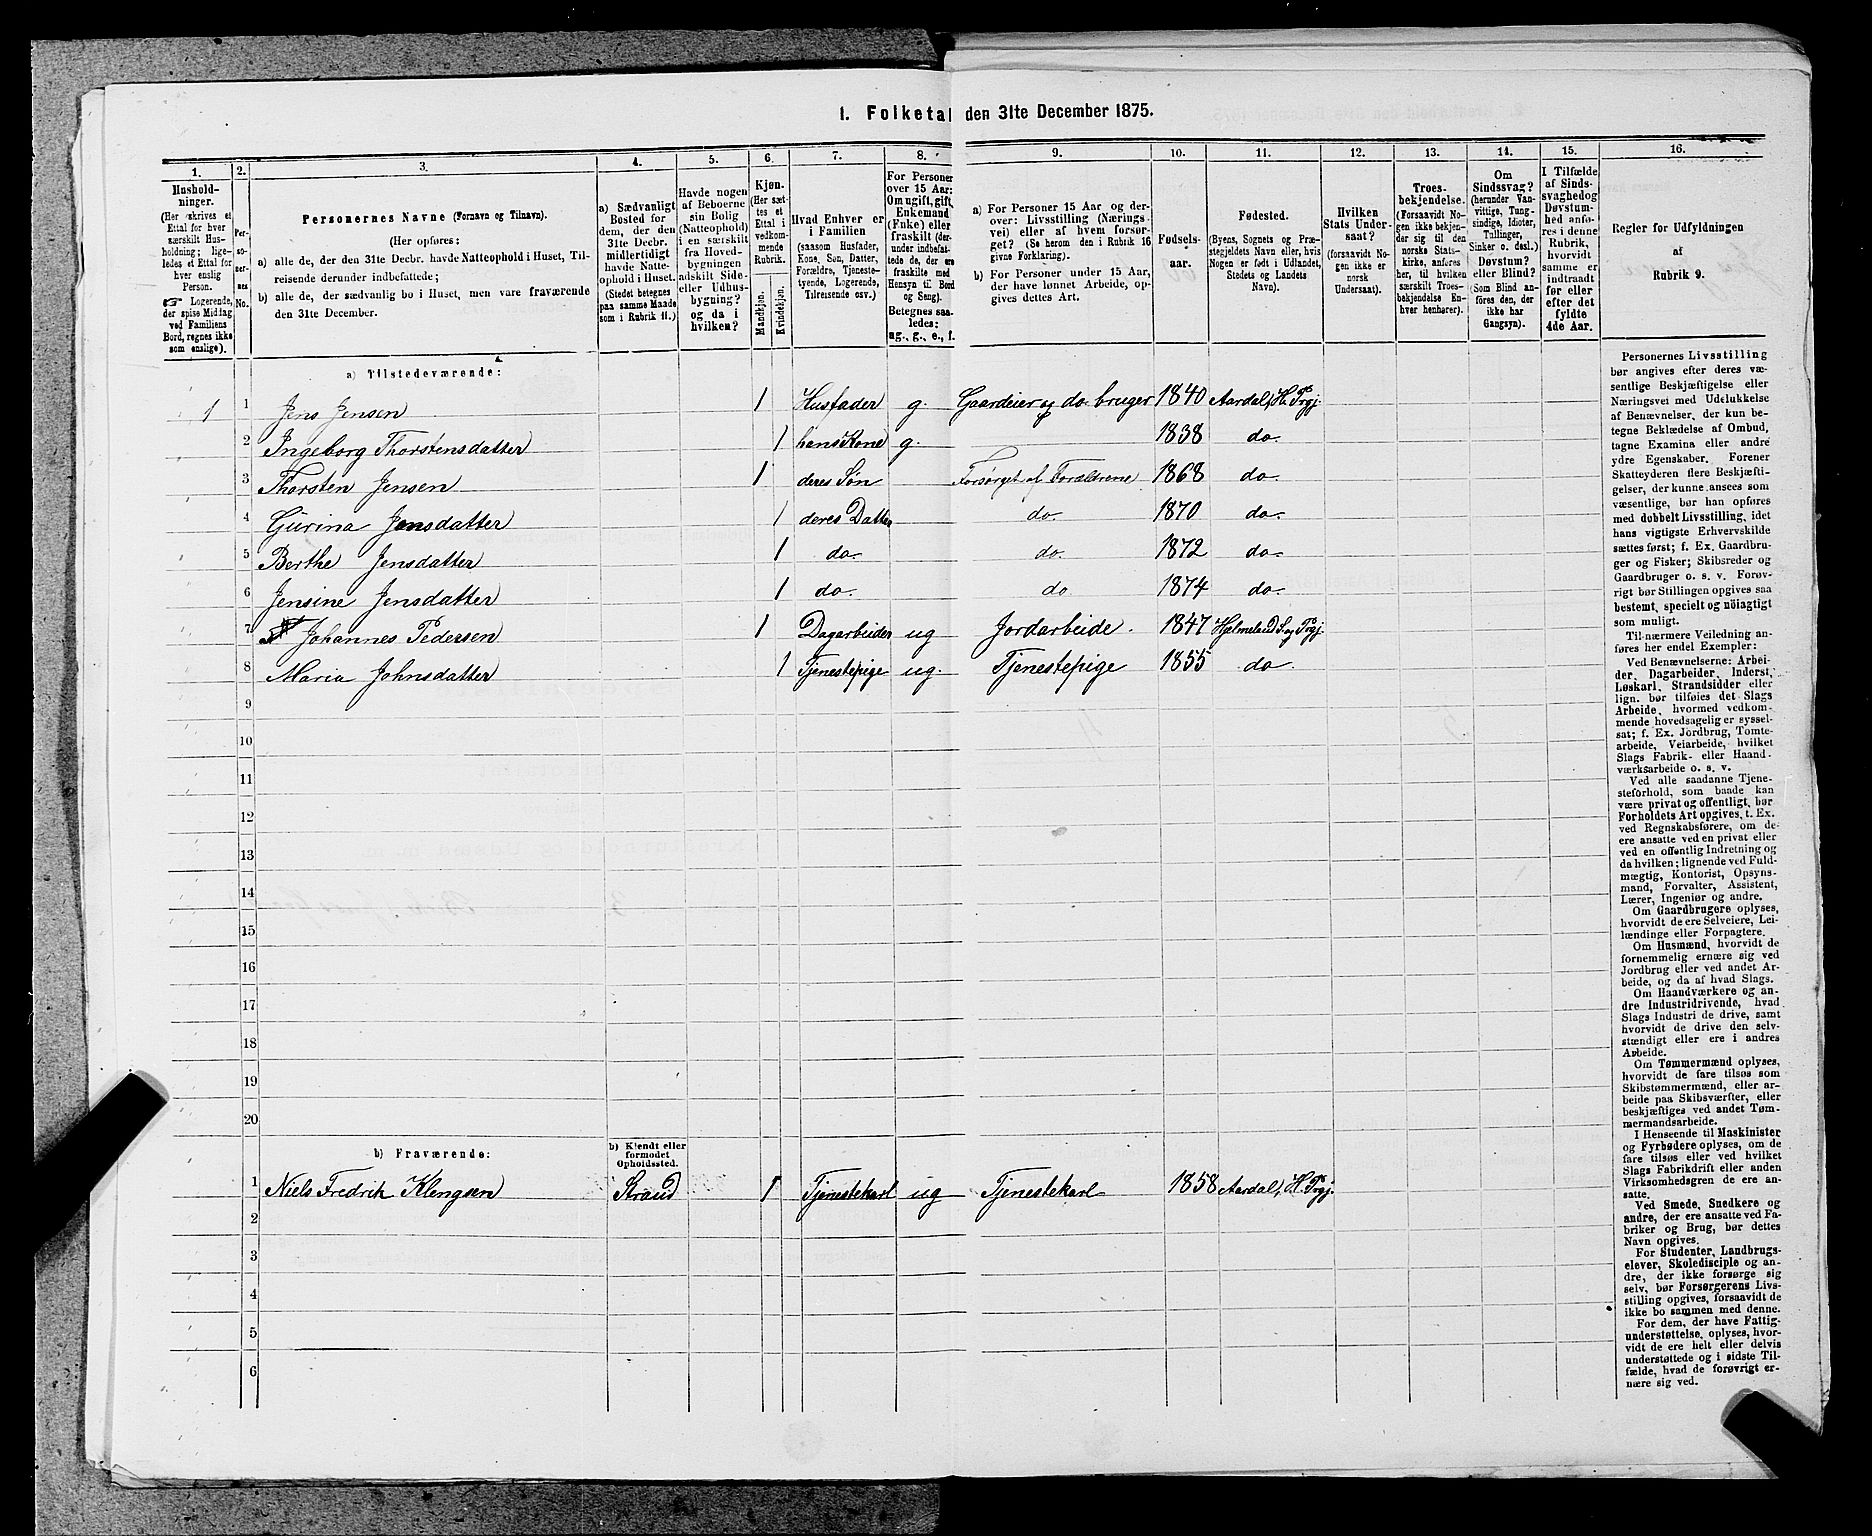 1. Folketal den 31te December 1875.
1.
2.
3.
4.
5.
6.
7.
8.
9.
10.
11.
12.
13.
14.
15.
16.
Hushold-
ninger.
(Her skrives et
Ettal for hver
særskilt Hus-
holdning; lige-
ledes et Ettal for
hver enslig
Person.
☞ Logerende,
der spise Middag
ved Familiens
Bord, regnes ikke
som enslige).
Per-
so-
ner-
nes
No.
Personernes Navne (Fornavn og Tilnavn).
(Her opføres:
a) alle de, der den 31te Decbr. havde Natteophold i Huset, Til-
reisende derunder indbefattede;
b) alle de, der sædvanlig bo i Huset, men vare fraværende
den 31te December.
a) Sædvanligt
Bosted for
dem, der den
31te Decbr.
midlertidigt
havde Natte-
ophold i Huset
(Stedet betegnes
paa samme Maade
som i Rubrik 11.)
Havde nogen
af Beboerne
sin Bolig
(Natteophold)
i en særskilt
fra Hoved-
bygningen
adskilt Side-
eller Udhus-
bygning?
og da i
hvilken?
Kjøn.
(Her sæt-
tes et
Ettal i
vedkom-
mende
Rubrik.
Mandkjøn.
Kvindekjøn.
Hvad Enhver er
i Familien
(saasom Husfader,
Kone, Søn, Datter,
Forældre, Tjeneste-
tyende, Logerende,
Tilreisende osv.)
For Personer
over 15 Aar:
Om ugift, gift,
Enkemand
(Enke) eller
fraskilt (der-
under indbefat-
tede de, der ere
fraskilte med
Hensyn til Bord
og Seng).
Betegnes saa-
ledes:
ug., g., e., f.
a) For Personer 15 Aar og der-
over: Livsstilling (Nærings-
vei) eller af hvem forsør-
get? (Se herom den i Rubrik 16
givne Forklaring).
b) For Personer under 15 Aar,
der have lønnet Arbeide, op-
gives dettes Art.
Fødsels-
aar.
Fødested.
(Byens, Sognets og Præ-
stegjeldets Navn eller, hvis
Nogen er født i Udlandet,
Stedets og Landets
Navn).
Hvilken
Stats Under-
saat?
(forsaavidt No-
gen ikke er
norsk
Undersaat).
Troes-
bekjendelse.
(Forsaavidt No-
gen ikke bekjen-
der sig til den
norske Stats-
kirke, anføres
her, til hvilken
særskilt Troes-
bekjendelse En-
hver henhører).
Om
Sindssvag?
(herunder Van-
vittige, Tung-
sindige, Idioter,
Tullinger,
Sinker o. desl.)
Døvstum?
eller Blind?
(Som Blind an-
føres den, der
ikke har
Gangsyn).
I Tilfælde
af Sinds-
svaghed og
Døvstum-
hed anfø-
res i denne
Rubrik,
hvorvidt
samme er
indtraadt
før eller
efter det
fyldte
4de Aar.
Regler for Udfyldningen
af
Rubrik 9.
a) Tilstedeværende:
1 1 Jens Jensen 1 Husfader g. Gaardeier og do bruger 1840 Aardal, H. Prgj.
2 Ingeborg Thorstensdatter 1 hans Kone g. 1838 do.
3 Thorsten Jensen 1 deres Søn Forsørget af Forældrene 1868 do.
4 Gurina Jensdatter 1 deres Datter do. 1870 do.
5 Berthe Jensdatter 1 do. do. 1872 do.
6 Jensine Jensdatter 1 do. do 1874 do.
7 Johannes Pedersen 1 Dagarbeider ug Jordarbeide. 1847 Hjelmeland S. og Prgj.
8 Maria Johnsdatter 1 Tjenestepige ug. Tjenestepige 1855 do
9
10
11
12
13
14
15
16
17
18
19
20
b) Fraværende:
b) Kjendt eller
formodet
Opholdssted.
1 Niels Fredrik Klengsen Strand 1 Tjenestekarl ug Tjenestekarl 1858 Aardal, H. Prgj.
2
3
4
5
6
Personernes Livsstilling
bør angives efter deres væ-
sentlige Beskjæftigelse eller
Næringsvei med Udelukkelse
af Benævnelser, der kun be-
tegne Beklædelse af Ombud,
tagne Examina eller andre
ydre Egenskaber. Forener
Skatteyderen flere Beskjæfti-
gelser, der kunne ansees som
væsentlige, bør han opføres
med dobbelt Livsstilling, idet
hans vigtigste Erhvervskilde
sættes først; f. Ex. Gaardbru-
ger og Fisker; Skibsreder og
Gaardbruger o. s. v. Forøv-
rigt bør Stillingen opgives saa
bestemt, specielt og nöiagtigt
som muligt.
Til nærmere Veiledning an-
føres her endel Exempler:
Ved Benævnelserne: Arbei-
der, Dagarbeider, Inderst,
Løskarl, Strandsidder eller
lign. bør tilføies det Slags
Arbeide, hvormed vedkom-
mende hovedsagelig er syssel-
sat; f. Ex. Jordbrug, Tomte-
arbeide, Veiarbeide, hvilket
Slags Fabrik- eller Haand-
værksarbeide o. s. v.
Ved alle saadanne Tjene-
steforhold, som baade kan
være privat og offentligt, bør
Forholdets Art opgives, t. Ex.
ved Regnskabsførere, om de-
ere ansatte ved en privat eller
ved en offentlig Indretning og
da hvilken; lignende ved Fuld-
mægtig, Kontorist, Opsyns-
mand, Forvalter, Assistent,
Lærer, Ingeniør og andre.
Om Gaardbrugere oplyses,
hvorvidt de ere Selveiere, Lei-
lændinge eller Forpagtere.
Om Husmænd, hvorvidt de
fornemmelig ernære sig ved
Jordbrug eller ved andet Ar-
beide, og da af hvad Slags.
Om Haandværkere og an-
dre Industridrivende, hvad
Slags Industri de drive, samt
hvorvidt de drive den selv-
stændigt eller ere i andres
Arbeide.
Om Tømmermænd oplyses,
hvorvidt de fare tilsøs som
Skibstømmermænd, eller ar-
beide paa Skibsværfter, eller
beskjæftiges ved andet Tøm-
mermandsarbeide.
I Henseende til Maskinister
og Fyrbødere oplyses, om de
fare tilsøs eller ved hvilket
Slags Fabrikdrift eller anden
Virksomhedsgren de ere an-
satte.
Ved Smede, Snedkere og
andre, der ere ansatte ved Fa-
briker og Brug, bør dettes
Navn opgives.
For Studenter, Landbrugs-
elever, Skoledisciple og an-
dre, der ikke forsørge sig
selv, bør Forsørgerens Livs-
stilling opgives, forsaavidt de
ikke bo sammen med denne.
For dem, der have Fattig-
understøttelse, oplyses, hvor-
vidt de ere helt eller delvis
understøttede og i sidste Til-
fælde, hvad de forøvrigt er-
nære sig ved.